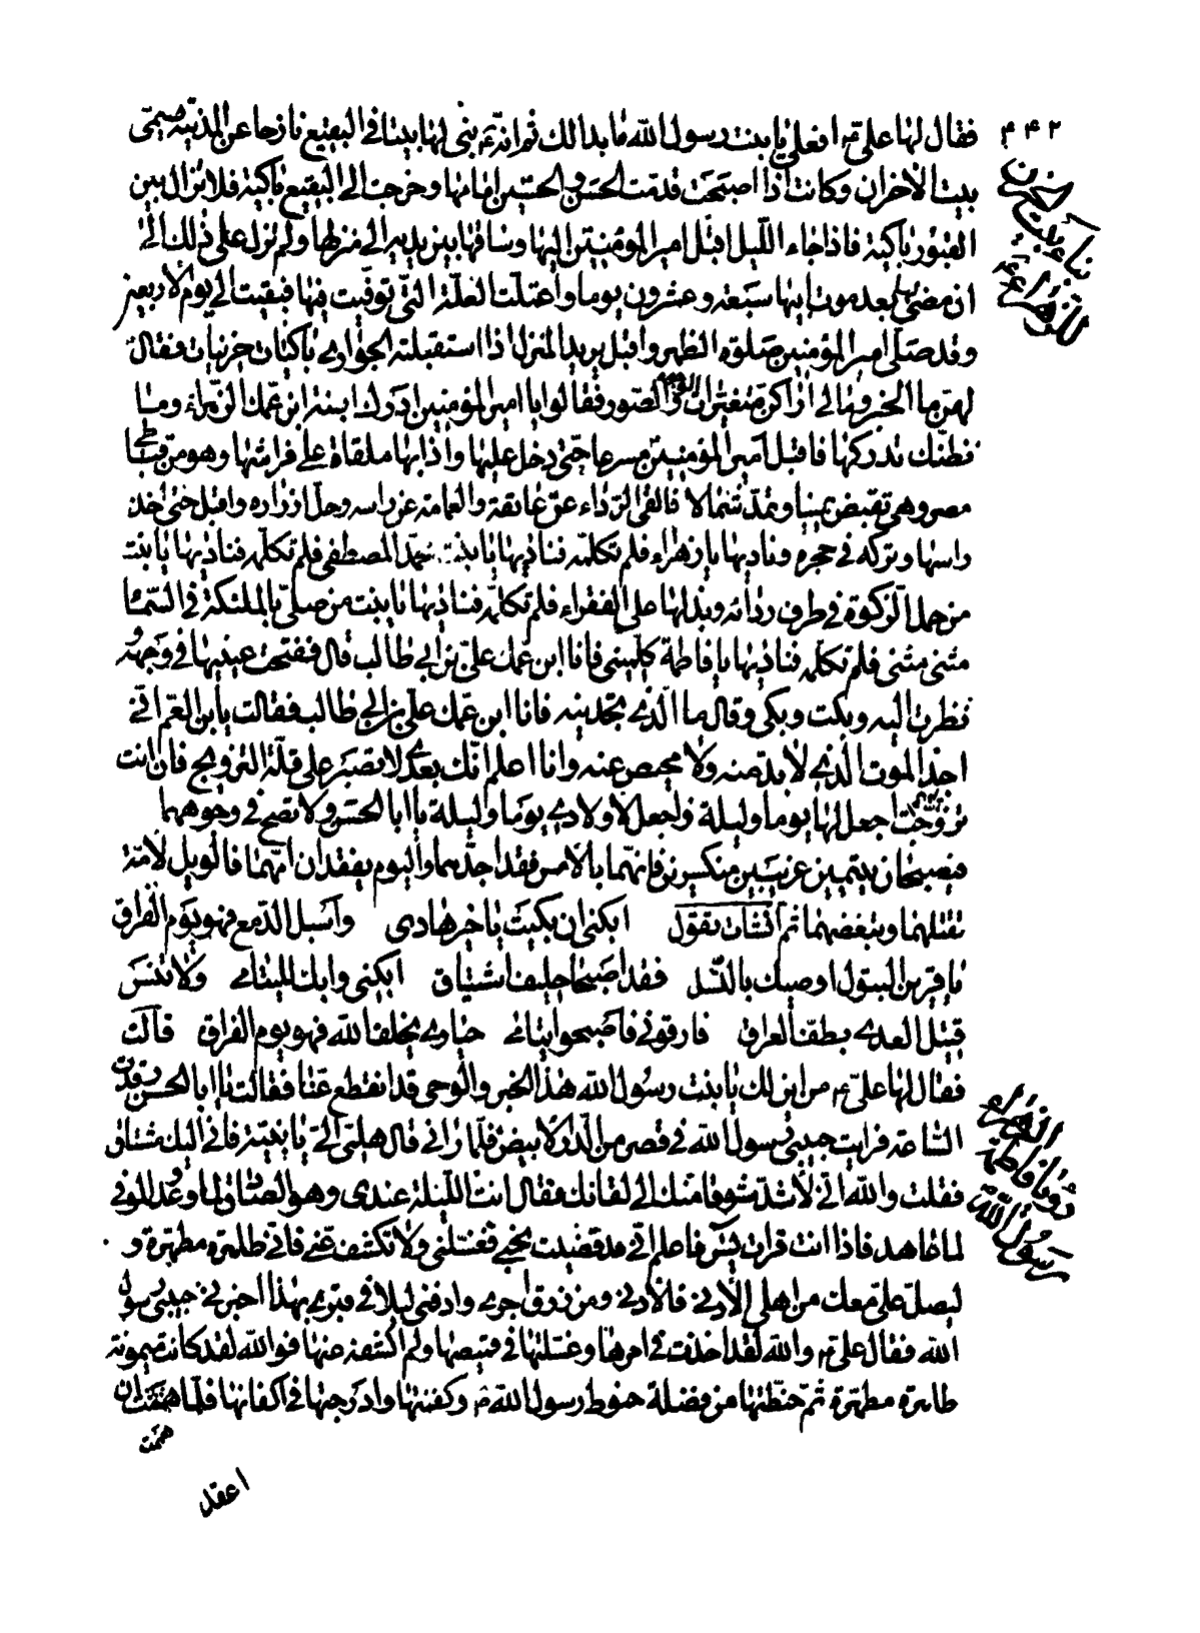 ۴۴۲
فقال لها علي ع افعلي يا بنت رسول الله ما بدا لك ثم انه ع بنى لها بيتا في البقيع نازحا عن المدينة يسمى
بيت الاحزان وكانت اذا اصبحت قدمت الحسن والحسين امامها وخرجت الى البقيع باكية فلا تزال بين
القبور باكية فاذا جاء الليل اقبل امير المؤمنين اليها وساقها بين يديه الى منزلها ولم تزل على ذلك الى
ان مضى لها بعد موت ابيها سبعة وعشرون يوما واعتلت العلة التي توفيت فيها فبقيت الى يوم الاربعين
وقد صلى امير المؤمنين صلوة الظهر واقبل يريد المنزل اذا استقبلته الجواري باكيات حزينات فقال
لهن ما الخبر وما لي اراكن متغيرات الوجوه والصور فقالوا يا امير المؤمنين ادرك ابنة ابن عمك الزهراء وما
نظنك تدركها فاقبل امير المؤمنين مسرعا حتى دخل عليها واذا بها ملقاة على فراشها وهو من قباطي
مصر وهي تقبض يمينا وتمد شمالا فالقى الرداء عن عاتقه والعمامة عن راسه وحل ازراره واقبل حتى اخذ
راسها وتركه في حجره وناديها يا زهراء فلم تكلمه فناديها يا بنت محمد المصطفى فلم تكلمه فناديها يا بنت
من حمل الزكوة في طرف ردائه وبذلها على الفقراء فلم تكلمه فناديها يا بنت من صلى بالملئكة في السماء
مثنى مثنى فلم تكلمه فناديها يا فاطمة كلميني فانا ابن عمك علي بن ابي طالب قال ففتحت عينيها في وجهه
نظرت اليه وبكت وبكى وقال ما الذي تجدينه فانا ابن عمك علي بن ابي طالب فقالت يا بن العم اني
اجد الموت الذي لا بد منه ولا محيص عنه وانا اعلم انك بعدي لا تصبر على قلة التزويج فان انت
تزوجت اجعل لها يوما وليلة واجعل لاولادي يوما وليلة يا ابا الحسن ولا تصح في وجوههما
فيصبحان يتيمين غريبين منكسرين فانهما بالامس فقدا جدهما واليوم يفقدان امهما فالويل لامة
تقتلهما وتبغضهما ثم انشات تقول ابكني ان بكيت يا خير هادي واسبل الدمع فهو يوم الفراق
يا قرين البتول اوصيك بالنسل فقد اصبحا حليف اشتياق ابكني وابك لليتامى ولا تنس
قتيل العدى بطف العراق فارقوني فاصبحوا يتامى حيارى يخلف الله فهو يوم الفراق قالت
فقال لها علي ع من اين لك يا بنت رسول الله هذا الخبر والوحي قد انقطع عنا فقالت يا ابا الحسن رقدت
الساعة فرايت حبيبي رسول الله في قصر من الدر الابيض فلما راني قال هلمي الي يا بنية فاني اليك مشتاق
فقلت والله اني لاشد شوقا منك الى لقائك فقال انت الليلة عندي وهو الصادق لما وعد الموفي
لما عاهد فاذا انت قرات يس فاعلم اني قد قضيت نحبي فغسلني ولا تكشف عني فاني طاهرة مطهرة و
ليصل علي معك من اهلي الادنى فالادنى ومن رزق اجري وادفني ليلا في قبري بهذا اخبرني حبيبي رسول
الله فقال علي ع والله لقد اخذت في امرها وغسلتها في قميصها ولم اكشفه عنها فوالله لقد كانت ميمونة
طاهرة مطهرة ثم حنطتها من فضلة حنوط رسول الله ص وكفنتها وادرجتها في اكفانها فلما هممت ان
هممت
اعقد
الزهراء
رؤيا فاطمة
رسول الله